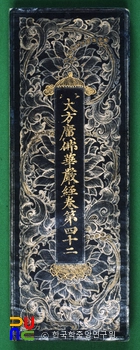 大方廣佛華嚴經卷第四十二
한국학중앙연구원